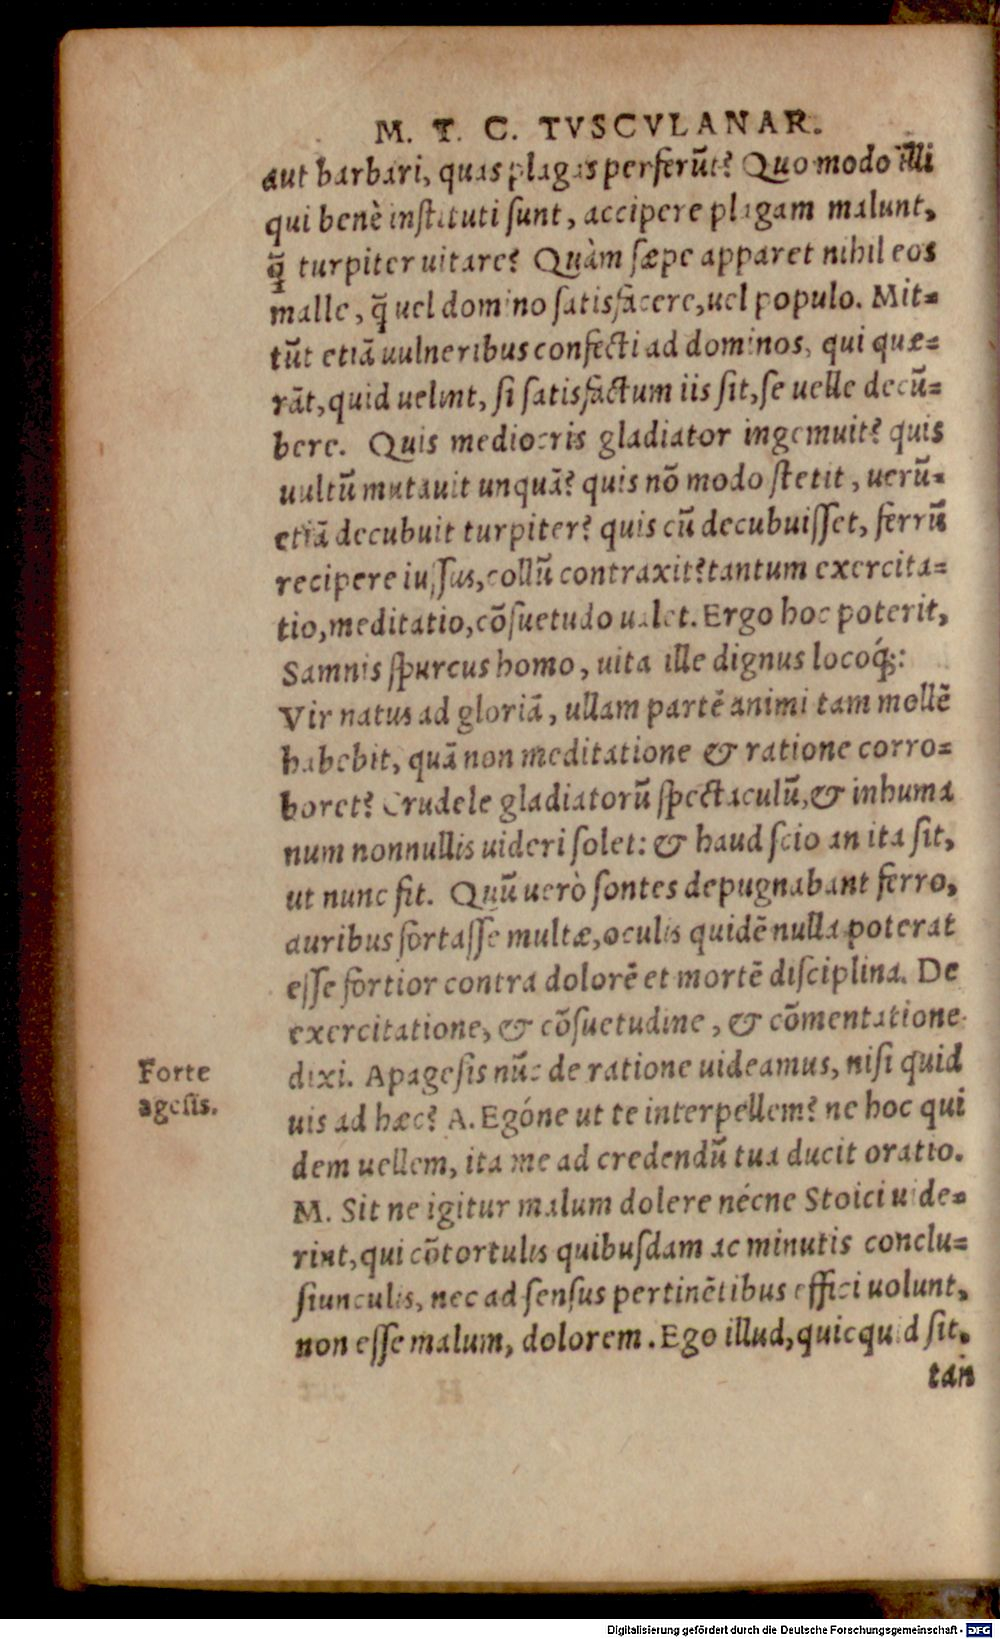 M. T. C. TVSCVLANAR.
aut barbari, quas plagas perferūt? Quo modo illi
qui benè instituti sunt, accipere plagam malunt,
q̄ turpiter uitare? Quàm sæpe apparet nihil eos
malle, q̄ uel domino satisfacere, uel populo. Mit=
tūt etiā uulneribus confecti ad dominos, qui quæ=
rāt, quid uelint, si satisfactum iis sit, se uelle decū=
bere. Quis mediocris gladiator ingemuit? quis
uultū mutauit unquā? quis nō modo stetit, uerū=
etiā decubuit turpiter? quis cū decubuisset, ferrū
recipere iussus, collū contraxit? tantum exercita=
tio, meditatio, cōsuetudo ualet. Ergo hoc poterit,
Samnis spurcus homo, uita ille dignus locoq́;:
Vir natus ad gloriā, ullam partē animi tam mollē
habebit, quā non meditatione & ratione corro=
boret? Crudele gladiatorū spectaculū, & inhuma
num nonnullis uideri solet: & haud scio an ita sit,
ut nunc fit. Quū uerò sontes depugnabant ferro,
auribus fortasse multæ, oculis quidē nulla poterat
esse fortior contra dolorē et mortē disciplina. De
exercitatione, & cōsuetudine, & cōmentatione
dixi. Apagesis nūc de ratione uideamus, nisi quid
uis ad hæc? A. Egóne ut te interpellem? ne hoc qui
dem uellem, ita me ad credendū tua ducit oratio.
M. Sit ne igitur malum dolere nécne Stoici uide=
rint, qui cōtortulis quibusdam ac minutis conclu=
siunculis, nec ad sensus pertinētibus effici uolunt,
non esse malum, dolorem. Ego illud, quicquid sit,
tan
Forte
agesis.
Digitalisierung gefördert durch die Deutsche Forschungsgemeinschaft - DFG